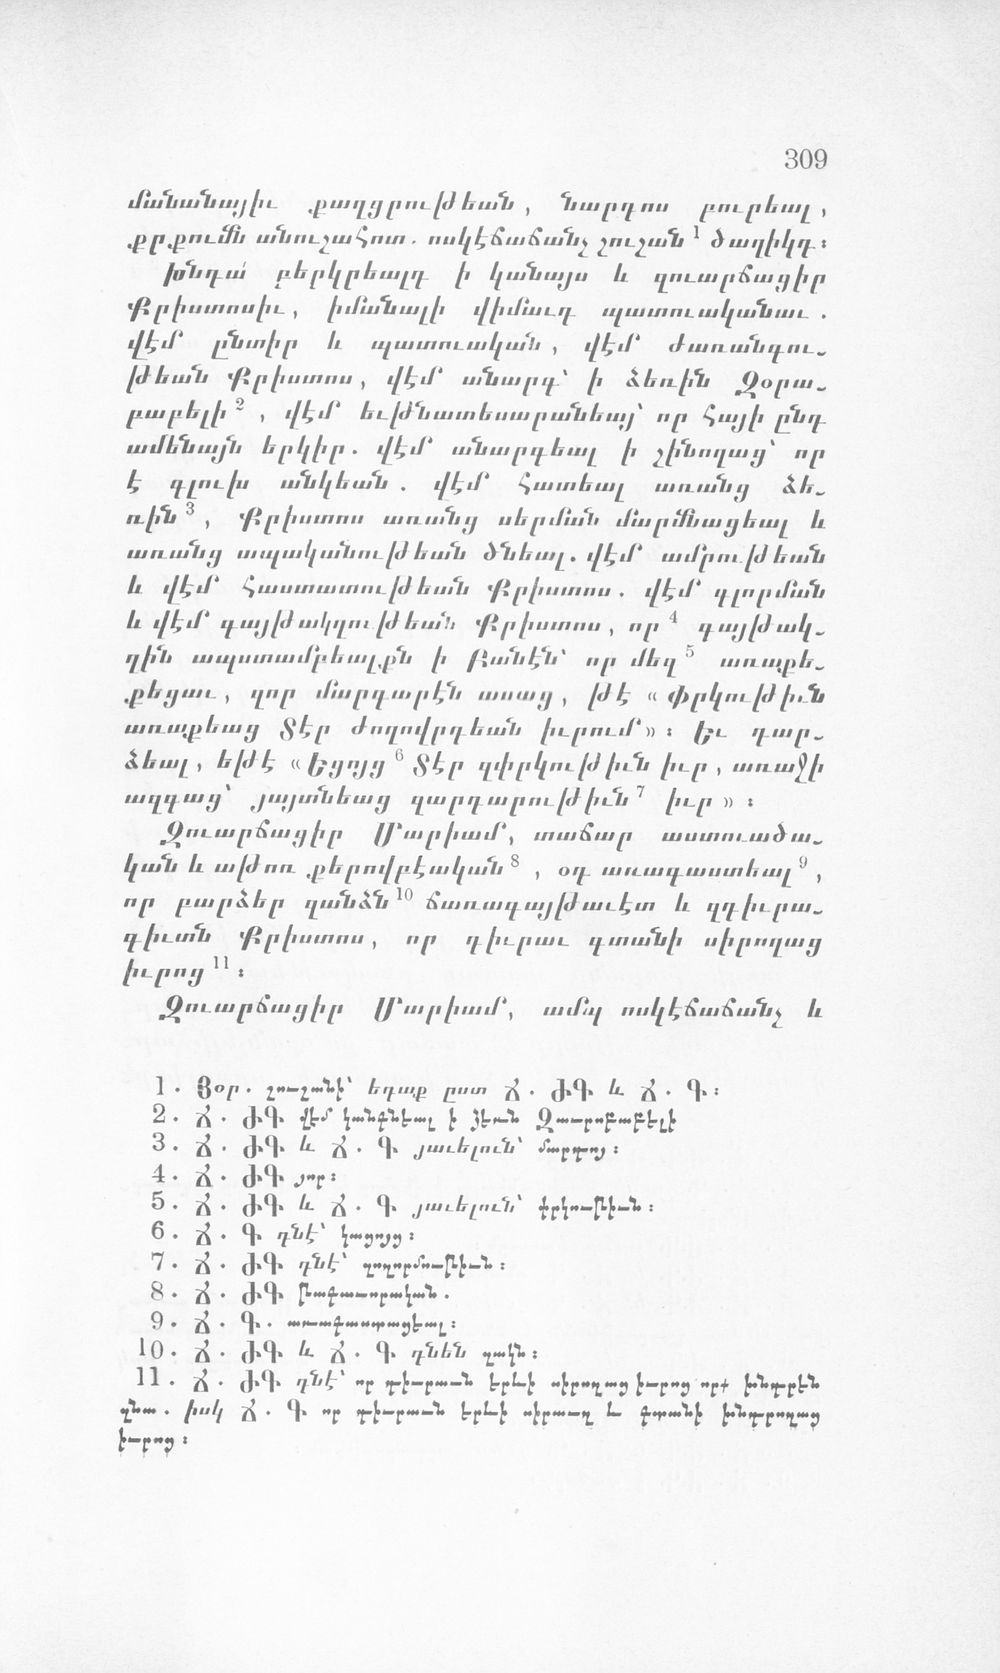 309
մանանայիւ քաղցրութեան, նարդոս բուրեալ,
քրքումն անուշահոտ. ոսկէճաճանչ շուշան¹ ծաղիկդ։
Խնդա՛ բերկրեալդ ի կանայս և զուարճացիր
Քրիստոսիւ, իմանալի վիմաւդ պատուականաւ.
վէմ ընտիր և պատուական, վէմ ժառանգու-
թեան Քրիստոս, վէմ անարգ՝ ի ձեռին Զօրա-
բաբելի², վէմ եւթնատեսարանեայ՝ որ հայի ընդ
ամենայն երկիր. վէմ անարգեալ ի շինողաց՝ որ
է գլուխ անկեան. վէմ հատեալ առանց ձե-
ռին³, Քրիստոս առանց սերման մարմնացեալ և
առանց ապականութեան ծնեալ. վէմ ամրութեան
և վէմ հաստատութեան Քրիստոս. վէմ գլորման
և վէմ գայթակղութեան Քրիստոս, որ⁴ գայթակ-
ղին ապստամբեալքն ի Բանէն՝ որ մեզ⁵ առաքե-
քեցաւ, զոր մարգարէն ասաց, թէ «Փրկութիւն
առաքեաց Տէր ժողովրդեան իւրում»։ Եւ դար-
ձեալ, եթէ «Եցոյց⁶ Տէր զփրկութիւն իւր, առաջի
ազգաց՝ յայտնեաց զարդարութիւն⁷ իւր»։
Զուարճացիր Մարիամ, տաճար աստուածա-
կան և աթոռ քերովբէական⁸, օդ առագաստեալ⁹,
որ բարձեր զանձն¹⁰ ճառագայթաւէտ և զդիւրա-
գիւտն Քրիստոս, որ դիւրաւ գտանի սիրողաց
իւրոց¹¹։
Զուարճացիր Մարիամ, ամպ ոսկէճաճանչ և
1. Յօր. շուշանի՝ եդաք ըստ Ճ. ԺԳ և Ճ. Գ։
2. Ճ. ԺԳ վէմ կանգնեալ ի ձեռն Զաւրոբաբելի
3. Ճ. ԺԳ և Ճ. Գ յաւելուն՝ մարդոյ։
4. Ճ. ԺԳ յոր։
5. Ճ. ԺԳ և Ճ. Գ յաւելուն՝ փրկութիւն։
6. Ճ. Գ դնէ՝ կացոյց։
7. Ճ. ԺԳ դնէ՝ զողորմութիւն։
8. Ճ. ԺԳ թագաւորական.
9. Ճ. Գ. առագաստացեալ։
10. Ճ. ԺԳ և Ճ. Գ դնեն զակն։
11. Ճ. ԺԳ դնէ՝ որ դիւրաւն երևի սիրողաց իւրոց որք խնդրեն
զնա. իսկ Ճ. Գ որ դիւրաւն երևի սիրաւղ և գտանի խնդրողաց
իւրոց։